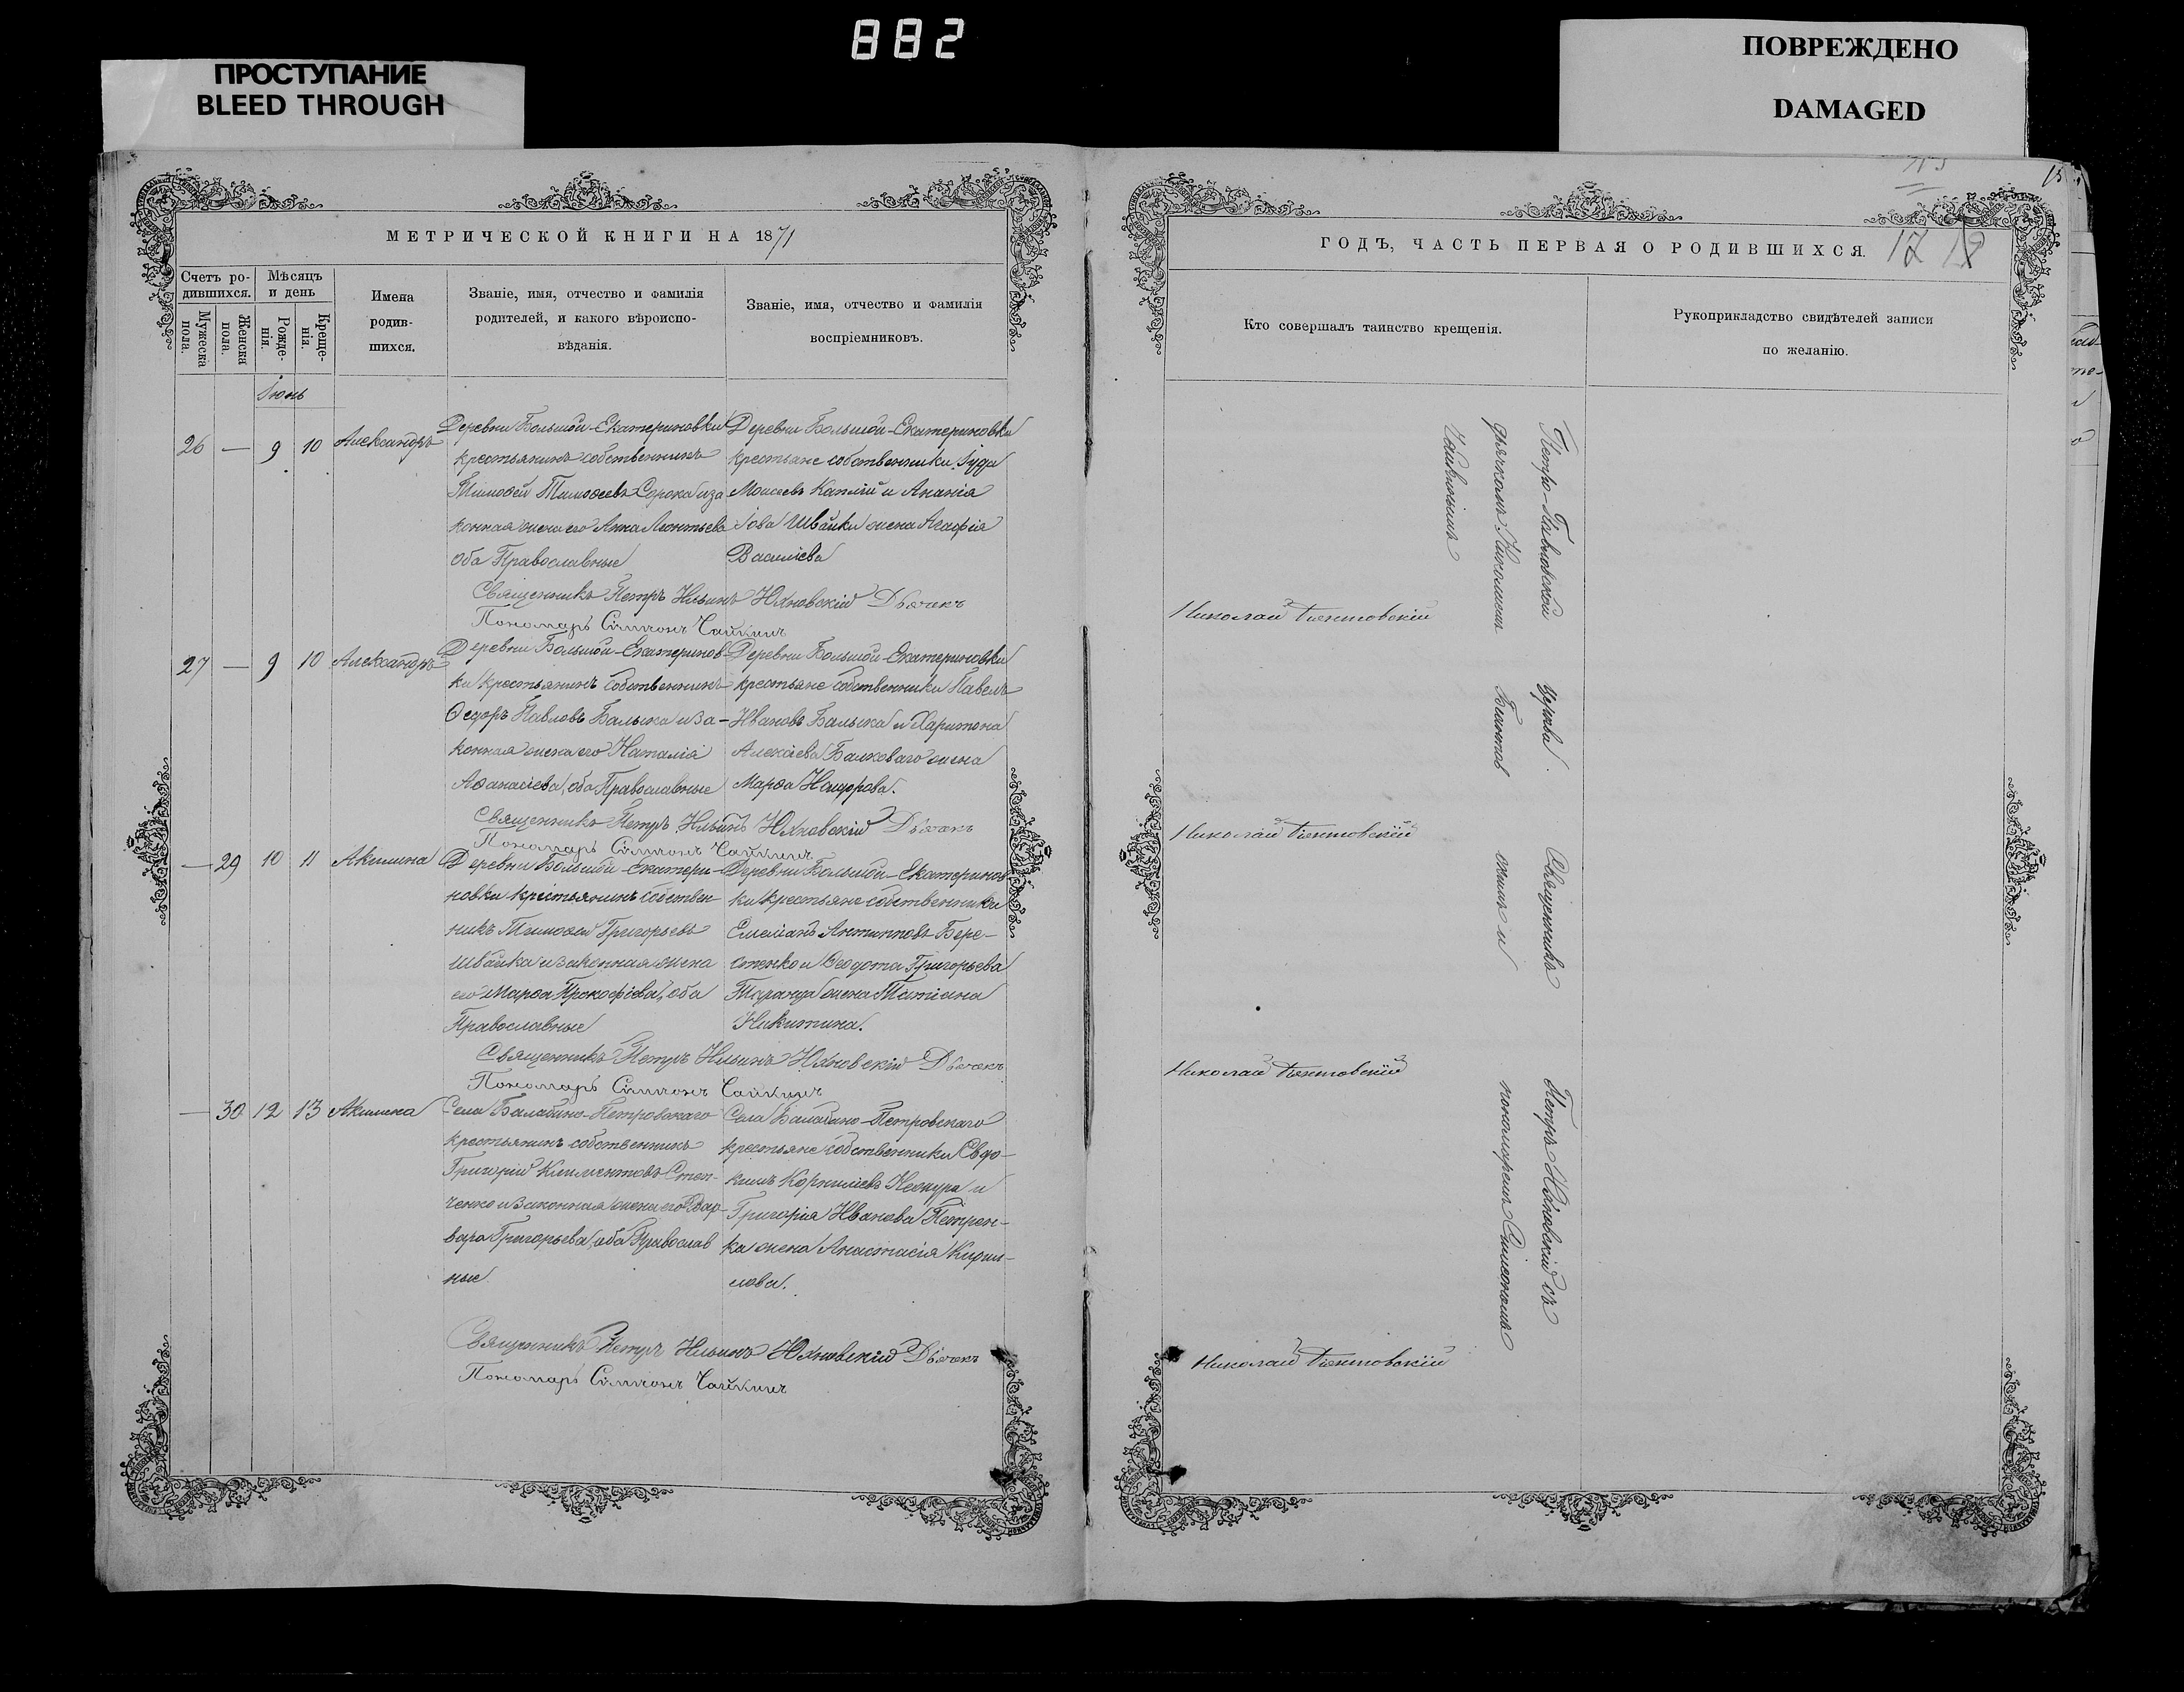 882
ПРОСТУПАНИЕ
BLEED THROUGH
ПОВРЕЖДЕНО
DAMAGED
МЕТРИЧЕСКОЙ КНИГИ НА 1871
Счетъ ро-
дившихся.
Мѣсяцъ
и день
Мужеска
пола.
Женска
пола.
Рожде-
нія.
Креще-
нія.
Имена
родив-
шихся.
Званіе, имя, отчество и фамилія
родителей, и какого вѣроиспо-
вѣданія.
Званіе, имя, отчество и фамилія
воспріемниковъ.
Іюнь
26 — 9 10 Александръ
Деревни Большой-Екатериновки
крестьянинъ собственникъ
Тимофей Тимофеевъ Сорока и за
конная жена его Анна Леонтьева
оба Православные
Деревни Большой-Екатериновки
крестьяне собственники Іуда
Моисеевъ Каплій и Ананія
Іова Швайки жена Агафія
Василіева
Священникъ Петръ Ильинъ Юхновскій Дьячекъ
Пономарь Симеонъ Чайкинъ
27 — 9 10 Александръ
Деревни Большой-Екатеринов-
ки крестьянинъ собственникъ
Ѳедоръ Павловъ Балыка и за-
конная жена его Наталія
Аѳанасіева, оба Православные
Деревни Большой-Екатериновки
крестьяне собственники Павелъ
Ивановъ Балыка и Харитона
Алексіева Балковаго жена
Марѳа
Священникъ Петръ Ильинъ Юхновскій Дьячекъ
Пономарь Симеонъ Чайкинъ
— 29 10 11 Акилина
Деревни Большой-Екатери-
новки крестьянинъ собствен
никъ Тимофей Григорьевъ
Швайка и законная жена
его Марѳа Прокофіева, оба
Православные
Деревни Большой-Екатеринов
ки крестьяне собственники
Емеліанъ Антиповъ Бере-
стенко и Ѳеодота Григорьева
Таранца жена Татіана
Никитина.
Священникъ Петръ Ильинъ Юхновскій Дьячекъ
Пономарь Симеонъ Чайкинъ
— 30 12 13 Акилина
Села Балабино-Петровскаго
крестьянинъ собственникъ
Григорій Климентовъ Степ-
ченко и законная жена его Вар-
вара Григорьева, оба Православ
ные.
Села Балабино-Петровскаго
крестьяне собственники Евдо-
кимъ Корниліевъ и
Григорія Иванова Петрен-
ка жена Анастасія Кирил-
лова.
Священникъ Петръ Ильинъ Юхновскій Дьячекъ
Пономарь Симеонъ Чайкинъ
ГОДЪ, ЧАСТЬ ПЕРВАЯ О РОДИВШИХСЯ. 17
Кто совершалъ таинство крещенія.
Рукоприкладство свидѣтелей записи
по желанію.
Петро-Павловской Церкви Священникъ Петръ Юхновскій съ
дьячкомъ Николаемъ пономаремъ Симеономъ
Чайкинымъ
Николай
Николай
Николай
Николай